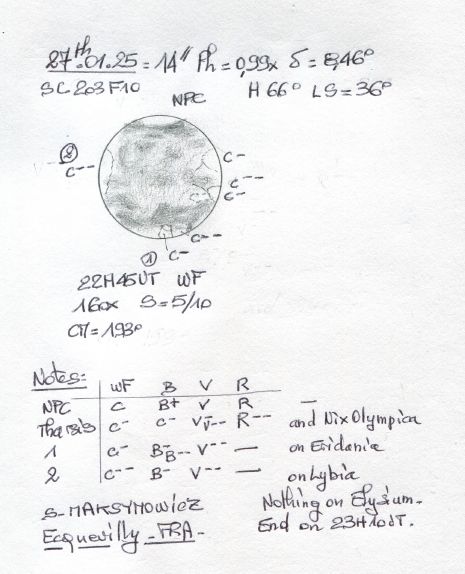 27th.01.25 = 14" Ph = 0,99x δ = 8,46°
SC 203 F10 H 66° LS = 36°
NPC
② C-
C-- C--
C-
C--
① C-
22H45UT WF
160x S = 5/10
CM = 193°
Notes:
WF B V R
NPC C B+ V R —
Tharsis C- C- V-V-- R-- and Nix Olympica
1 C- B-B-- V-- — on Eridania
2 C-- B- V-- — on Lybia
S. MAKSYMOWICZ Nothing on Elysium.
Ecquevilly - FRA - End on 23H10UT.